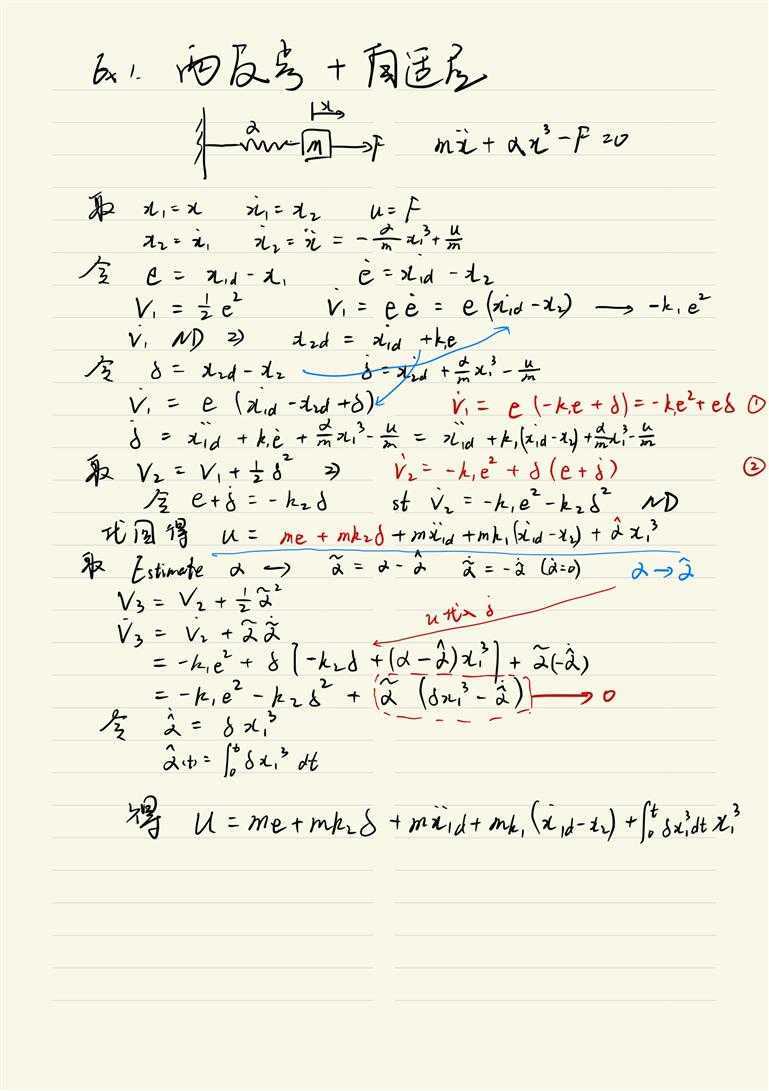 Ex 1. 两反步 + 自适应
α m x F mẍ + αx³ - F = 0
取 x₁ = x ẋ₁ = x₂ u = F
x₂ = ẋ₁ ẋ₂ = ẍ = -α/m x₁³ + u/m
令 e = x₁d - x₁ ė = ẋ₁d - x₂
V₁ = ½e² V̇₁ = eė = e(ẋ₁d - x₂) → -k₁e²
V̇₁ ND ⇒ x₂d = ẋ₁d + k₁e
令 δ = x₂d - x₂ δ̇ = ẋ₂d + α/m x₁³ - u/m
V̇₁ = e(ẋ₁d - x₂d + δ) V̇₁ = e(-k₁e + δ) = -k₁e² + eδ ①
δ̇ = ẍ₁d + k₁ė + α/m x₁³ - u/m = ẍ₁d + k₁(ẋ₁d - x₂) + α/m x₁³ - u/m
取 V₂ = V₁ + ½δ² ⇒ V̇₂ = -k₁e² + δ(e + δ̇) ②
令 e + δ̇ = -k₂δ st V̇₂ = -k₁e² - k₂δ² ND
得 u = me + mk₂δ + mẍ₁d + mk₁(ẋ₁d - x₂) + α̂x₁³
取 Estimate α → α̃ = α - α̂ α̃̇ = -α̂̇ (α̇=0) α → α̂
V₃ = V₂ + ½α̃²
V̇₃ = V̇₂ + α̃α̃̇ u代入 δ̇
= -k₁e² + δ[-k₂δ + (α - α̂)x₁³] + α̃(-α̂̇)
= -k₁e² - k₂δ² + α̃(δx₁³ - α̂̇) → 0
令 α̂̇ = δx₁³
α̂(t) = ∫₀ᵗ δx₁³ dt
得 u = me + mk₂δ + mẍ₁d + mk₁(ẋ₁d - x₂) + ∫₀ᵗ δx₁³dt x₁³